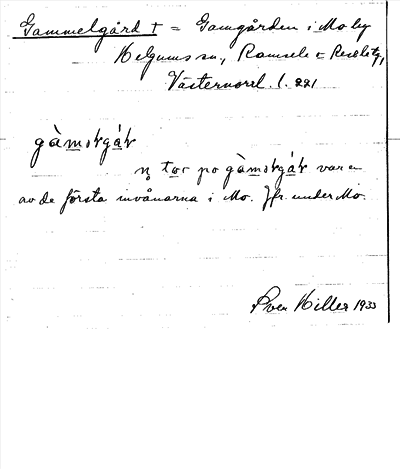 Gammelgård † = Gamgården i Mo by
Helgums sn., Ramsele o Resele tg,
Västernorrl. l. 221
gàmolgáḷ
tor po gàmolgáḷ var en
av de första invånarna i Mo. Jfr. under Mo.
Sven Hiller 1933